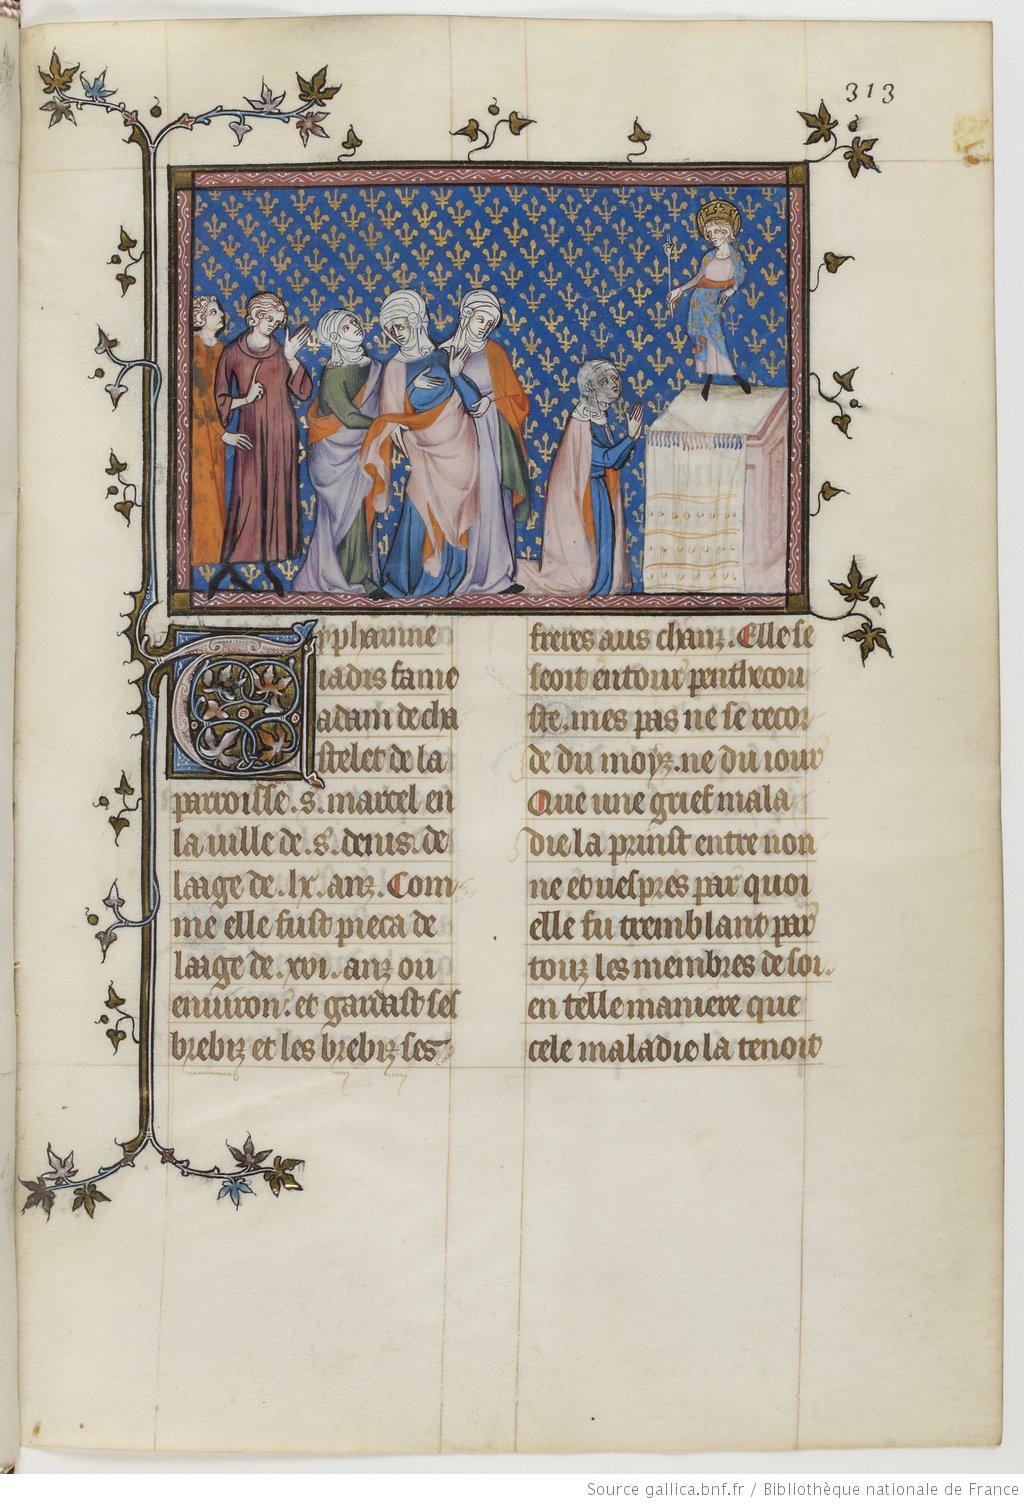 313
Typhanne
iadis fame
adam de cha
stelet de la
parroisse .s. marcel en
la uille de .s. denis. de
laage de .lx. anz. Com
me elle fust pieca de
laage de .xvi. anz ou
enuiron. et gardast ses
brebiz et les brebiz ses
freres aus chanz. Elle se
seoit entour penthecou
ste. mes pas ne se recor
de du moys. ne du iour
Que une grief mala
die la prinst entre non
ne et uespres par quoi
elle fu tremblant par
touz les membres de soi.
en telle maniere que
cele maladie la tenoit
Source gallica.bnf.fr / Bibliothèque nationale de France